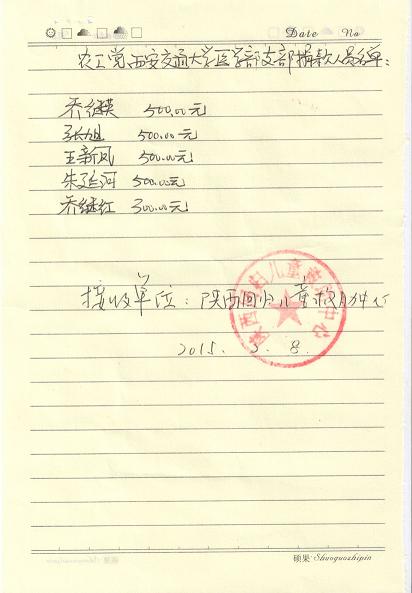 Date No
农工党西安交通大学医学部支部捐款人员名单:
乔继英 500.00元
张旭 500.00元
王新凤 500.00元
朱延河 500.00元
乔继红 300.00元
接收单位: 陕西回归儿童救助中心
2015. 3. 8.
陕西回归儿童救助中心
硕果·Shuoguozhipin